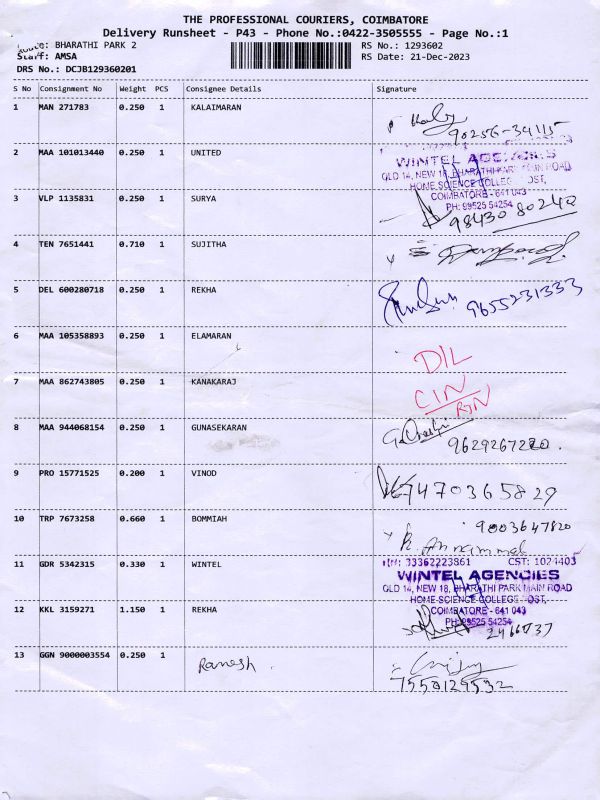 THE PROFESSIONAL COURIERS, COIMBATORE
Delivery Runsheet - P43 - Phone No.:0422-3505555 - Page No.:1
Route: BHARATHI PARK 2 RS No.: 1293602
Staff: AMSA RS Date: 21-Dec-2023
DRS No.: DCJB129360201
S No Consignment No Weight PCS Consignee Details Signature
1 MAN 271783 0.250 1 KALAIMARAN
90256-34115
2 MAA 101013440 0.250 1 UNITED
WINTEL AGENCIES
OLD 14, NEW 18, BHARATHI PARK MAIN ROAD
HOME SCIENCE COLLEGE POST,
3 VLP 1135831 0.250 1 SURYA
COIMBATORE - 641 043
PH: 99525 54254
98430 80240
4 TEN 7651441 0.710 1 SUJITHA
5 DEL 600280718 0.250 1 REKHA
9655231333
6 MAA 105358893 0.250 1 ELAMARAN
D/L
7 MAA 862743805 0.250 1 KANAKARAJ
C/N
RTN
8 MAA 944068154 0.250 1 GUNASEKARAN
9629267220.
9 PRO 15771525 0.200 1 VINOD
9470365829
10 TRP 7673258 0.660 1 BOMMIAH
9003647820
R. Annammal
11 GDR 5342315 0.330 1 WINTEL
TIN: 33362223861 CST: 1024403
WINTEL AGENCIES
OLD 14, NEW 18, BHARATHI PARK MAIN ROAD
HOME SCIENCE COLLEGE POST,
12 KKL 3159271 1.150 1 REKHA
COIMBATORE - 641 043
PH: 99525 54254
2466737
13 GGN 9000003554 0.250 1 Ramesh
7550129532